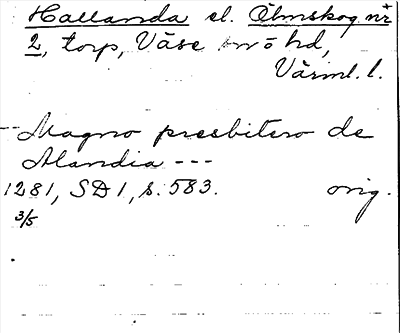 Hallanda el. Ölmskog nr
2, torp, Väse sn o hd,
Värml. l.
--- Magno presbitero de
Alandia ---
1281, SD 1, s. 583. orig.
3/5